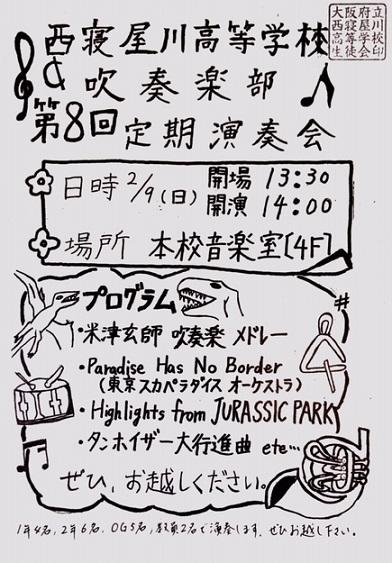 西寝屋川高等学校
吹奏楽部
第8回定期演奏会
大阪府立
西寝屋川
高等学校
生徒会印
日時 2/9(日) 開場 13:30
開演 14:00
場所 本校音楽室[4F]
プログラム
・米津玄師 吹奏楽 メドレー
・Paradise Has No Border
(東京スカパラダイス オーケストラ)
・Highlights from JURASSIC PARK
・タンホイザー大行進曲 etc…
ぜひ、お越しください。
1年4名、2年6名、OG5名、教員2名で演奏します。ぜひお越し下さい。